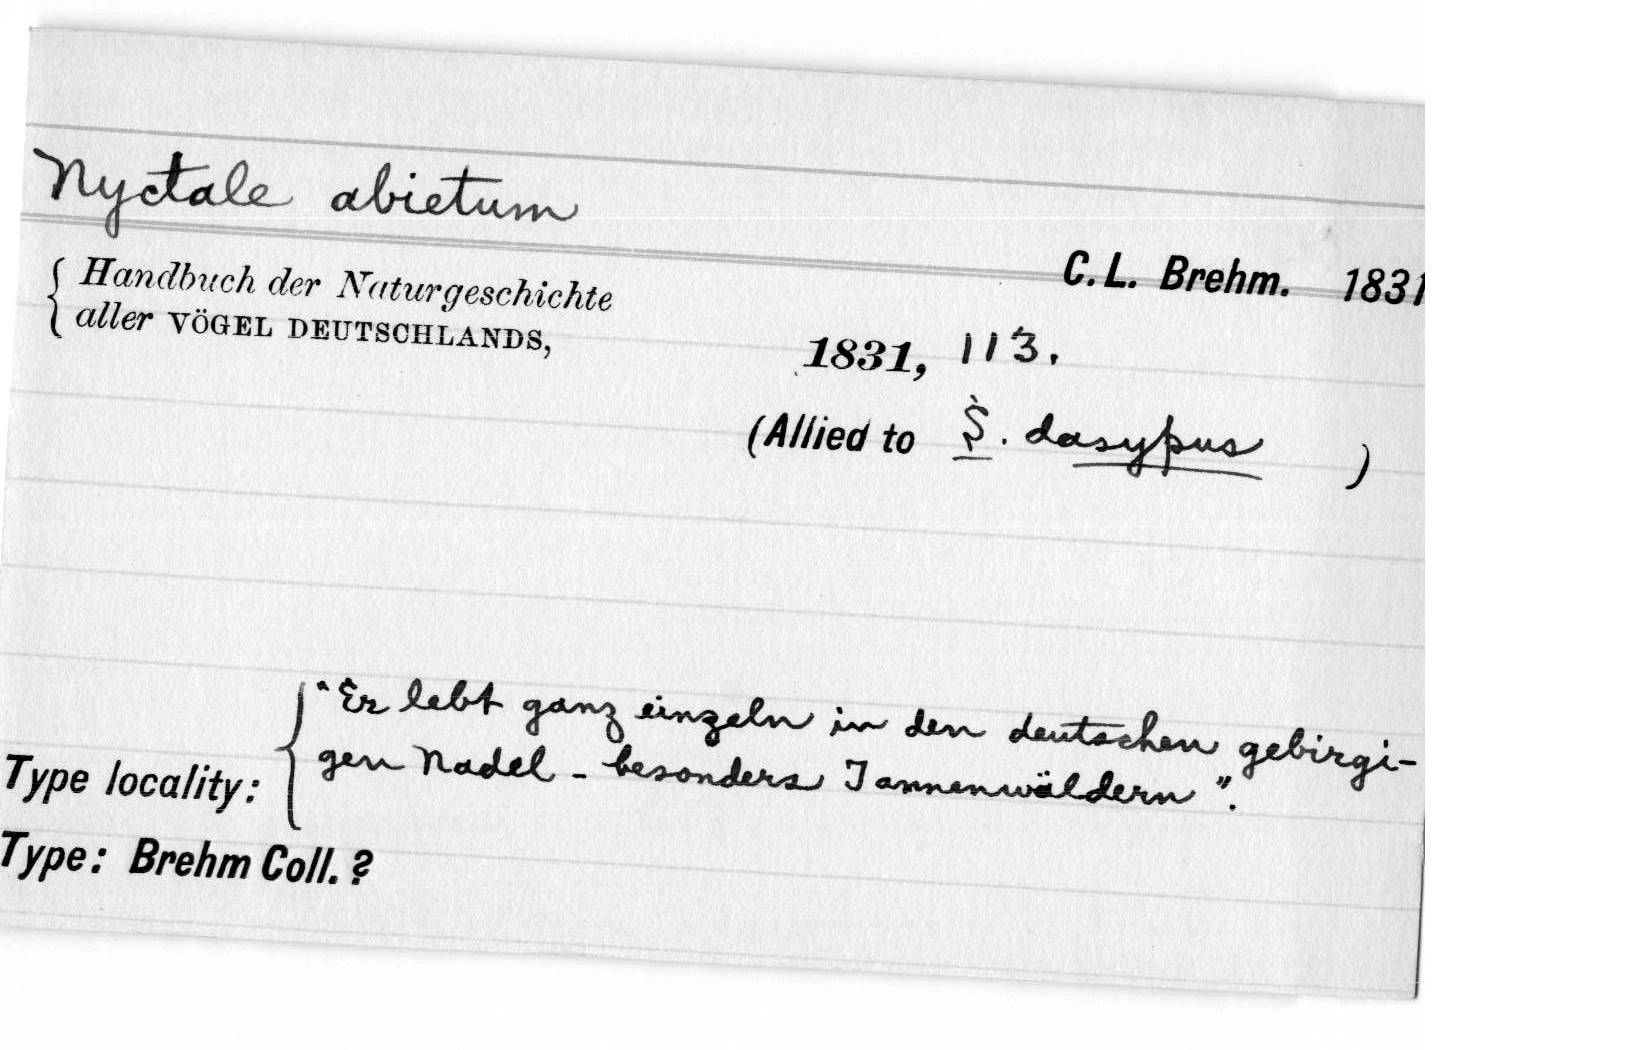 Nyctale abietum
C. L. Brehm. 1831
Handbuch der Naturgeschichte
aller VÖGEL DEUTSCHLANDS,
1831, 113.
(Allied to S. dasypus )
"Er lebt ganz einzeln in den deutschen gebirgi-
gen Nadel - besonders Tannenwäldern".
Type locality:
Type: Brehm Coll. ?